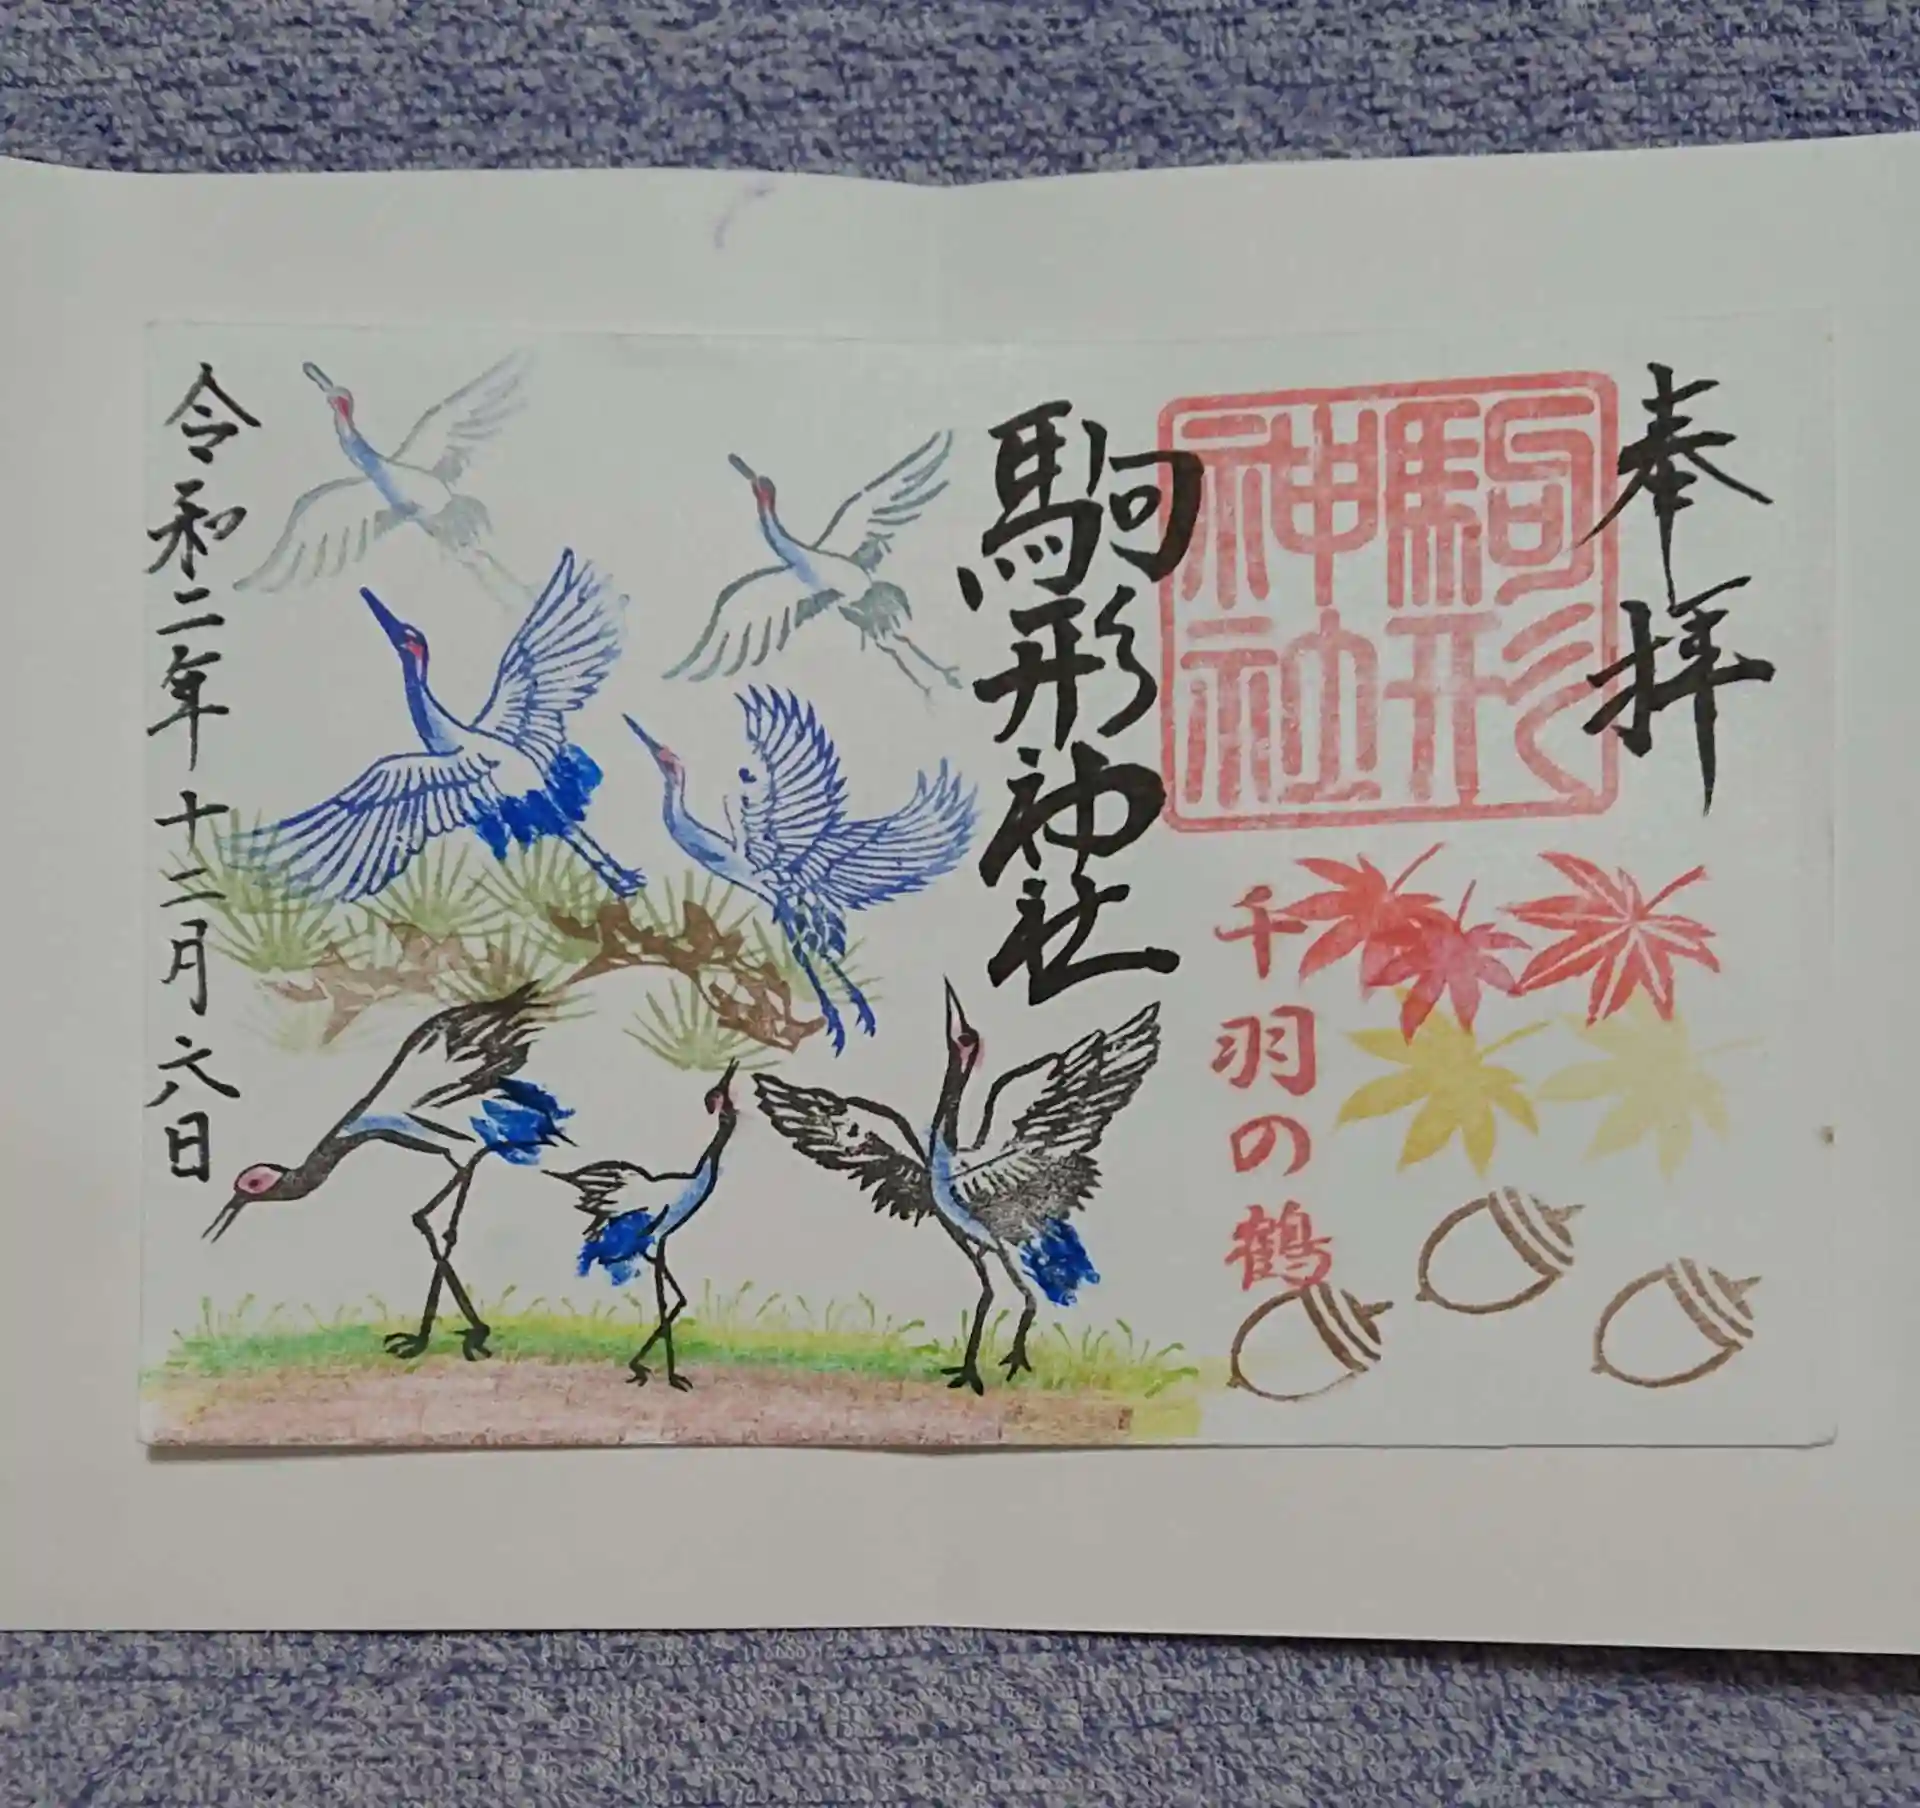 奉拝
駒形
神社
駒形神社
千羽の鶴
令和二年十二月六日